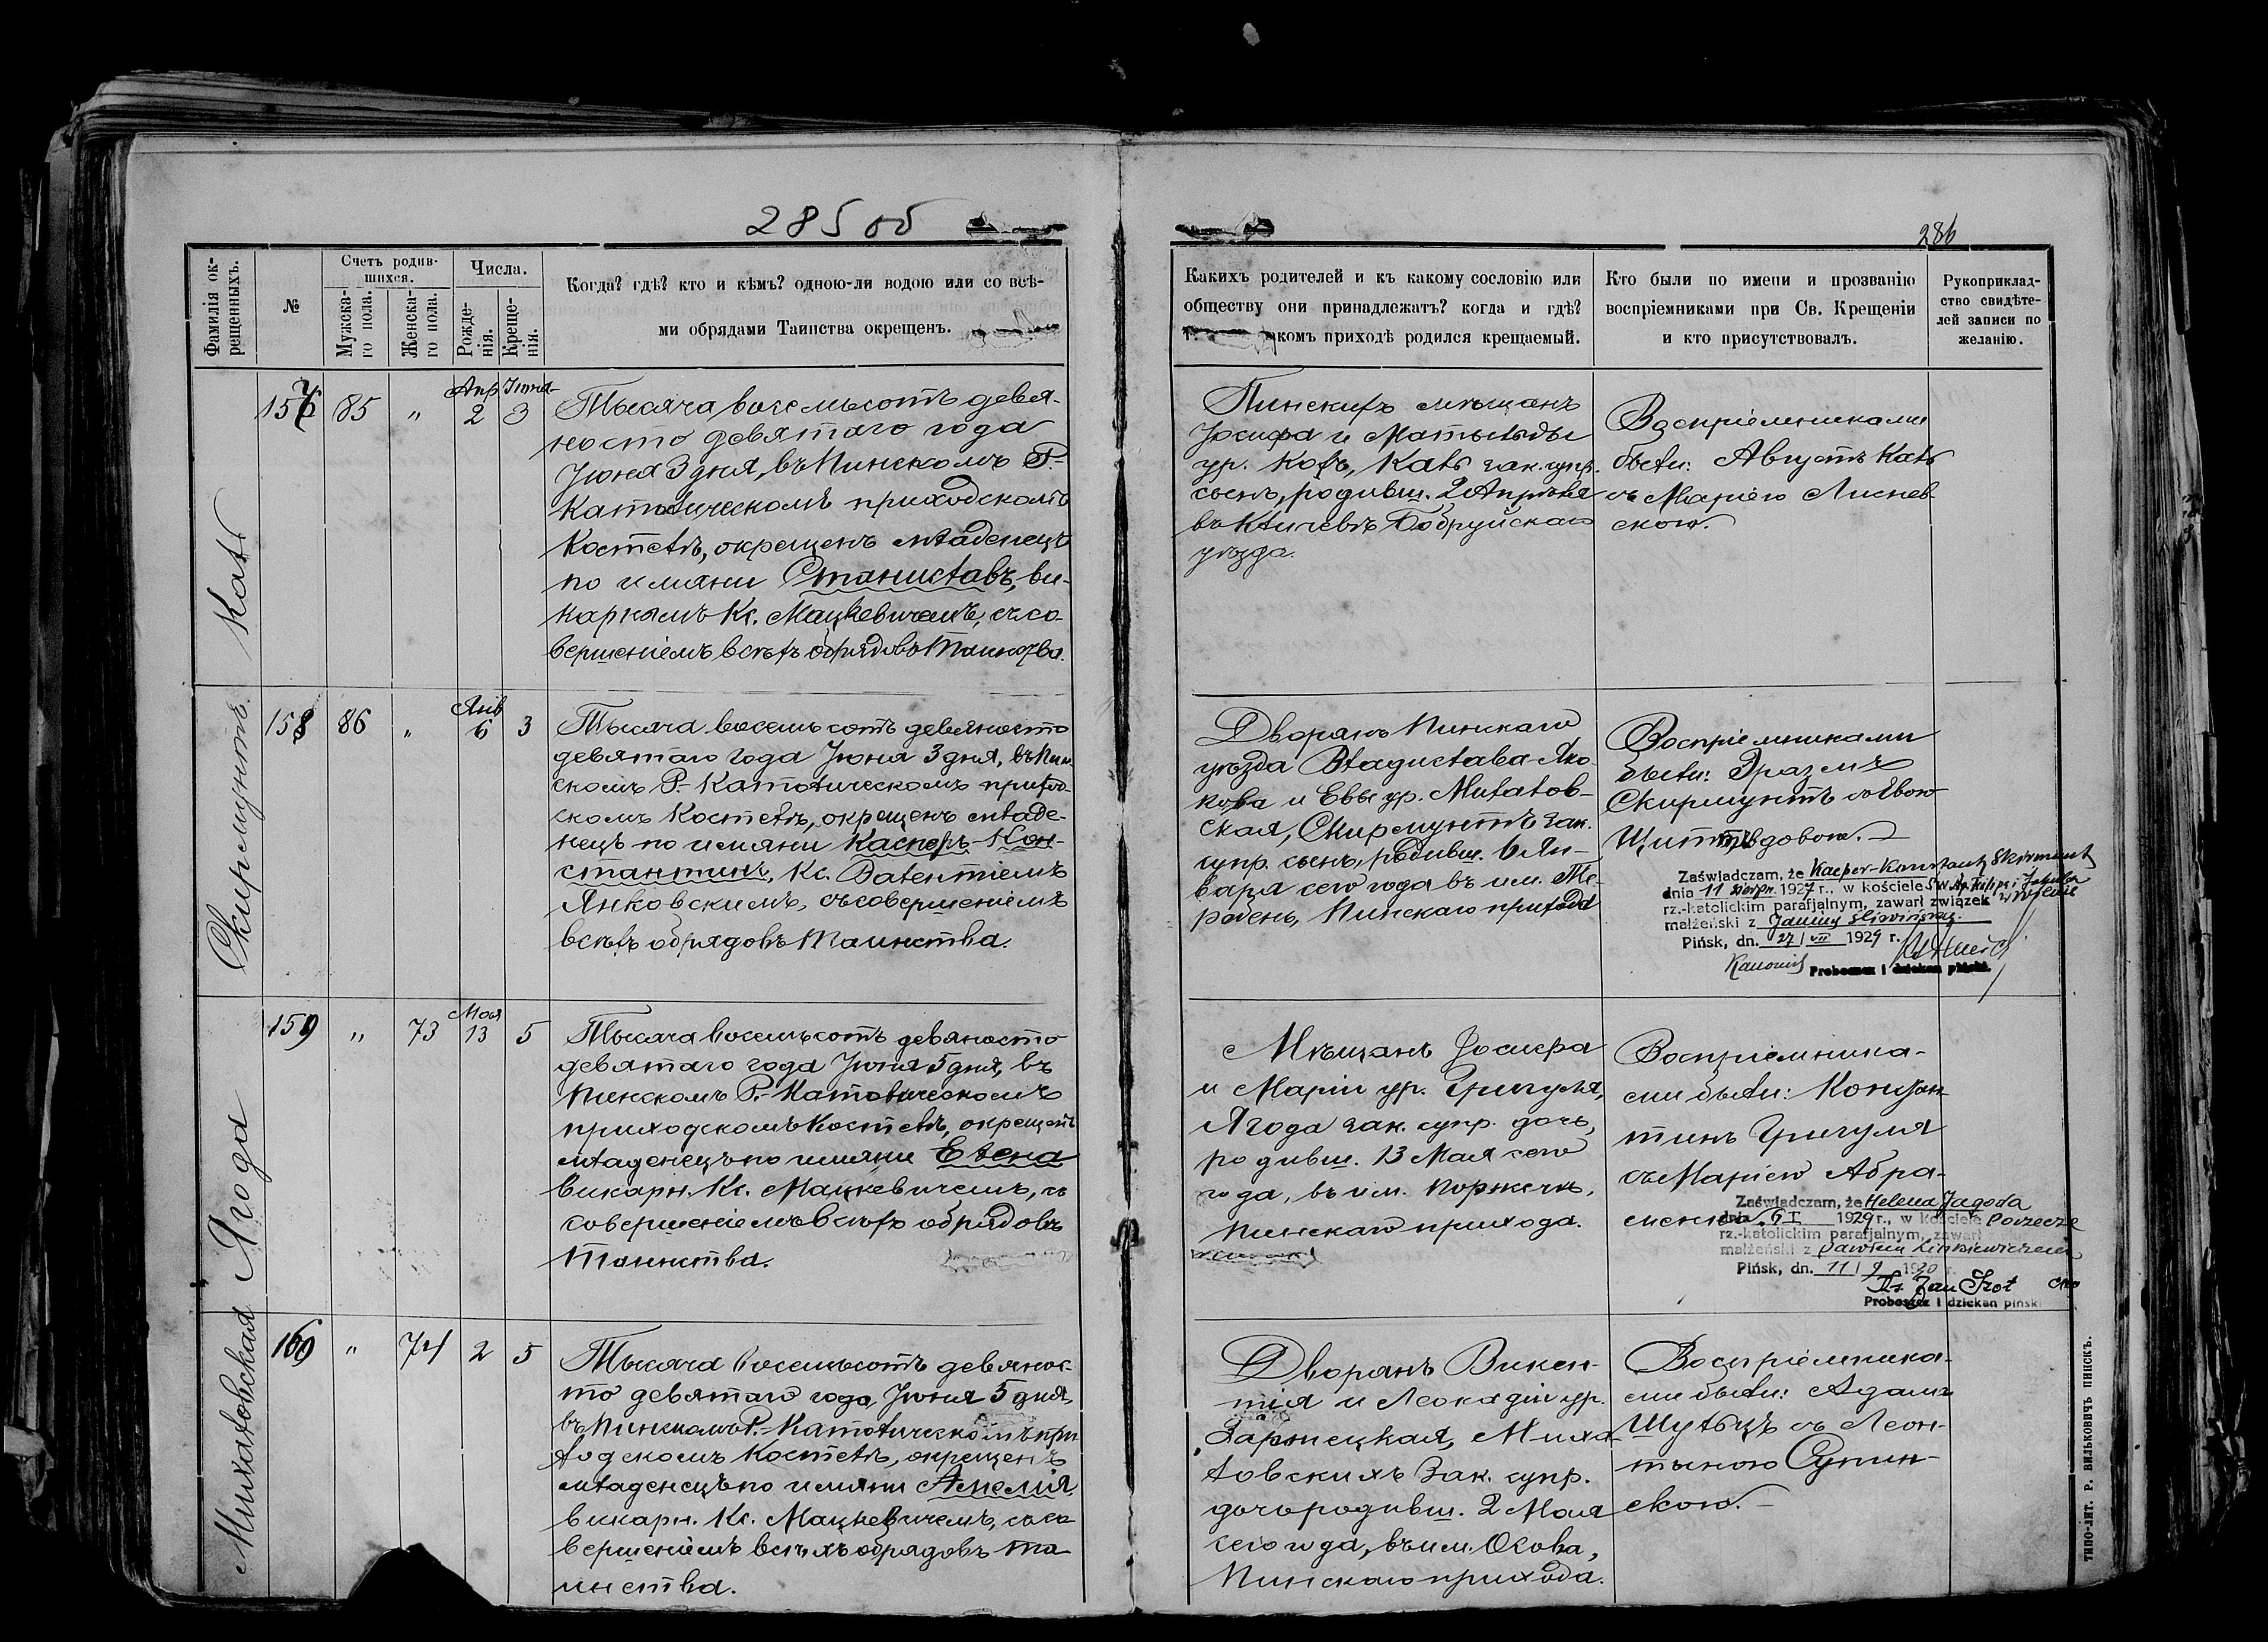 285 об
286
Фамилія ок-
рещенныхъ.
№
Счетъ родив-
шихся.
Мужска-
го пола.
Женска-
го пола.
Числа.
Рожде-
нія.
Креще-
нія.
Когда? гдѣ? кто и кѣмъ? одною-ли водою или со всѣ-
ми обрядами Таинства окрещенъ.
Какихъ родителей и къ какому сословію или
обществу они принадлежатъ? когда и гдѣ?
комъ приходѣ родился крещаемый.
Кто были по имени и прозванію
воспріемниками при Св. Крещеніи
и кто присутствовалъ.
Рукоприклад-
ство свидѣте-
лей записи по
желанію.
157
85
"
Апр
2
Іюня
3
Тысяча восемьсотъ девя-
носто девятаго года
Іюня 3 дня, въ Пинскомъ Р.-
Католическомъ приходскомъ
Костелѣ, окрещенъ младенецъ
по имяни Станиславъ, ви-
карнымъ Кс. Мацкевичемъ, съ со-
вершеніемъ всѣхъ обрядовъ Таинства.
Пинскихъ мѣщанъ
Іосифа и Матыльды
ур. зак. супр.
сынъ, родивш. 2 Апрѣля
въ Кличевѣ Бобруйскаго
уѣзда.
Воспріемниками
были: Августъ
съ Маріею Лиснев-
скою.
Скирмунтъ.
158
86
"
Янв
6
3
Тысяча восемьсотъ девяносто
девятаго года Іюня 3 дня, въ Пин-
скомъ Р.-Католическомъ приход-
скомъ Костелѣ, окрещенъ младе-
нецъ по имяни Касперъ-Кон-
стантинъ, Кс. Валентіемъ
Янковскимъ, съ совершеніемъ
всѣхъ обрядовъ Таинства.
Дворянъ Пинскаго
уѣзда Владислава-Яко-
кова и Евы ур. Михалов-
ская, Скирмунтъ зак.
супр. сынъ, родивш. 6 Ян-
варя сего года въ им.
Пинскаго прихода
Воспріемниками
были: Эразмъ
Скирмунтъ
Zaświadczam, że Kacper-Konstanty Skirmunt
dnia 11 sierpn. 1927 r., w kościele Św. Ap. Filipa i Jakuba
rz.-katolickim parafjalnym, zawarł związek w Wilnie
małżeński z Janiną Śliwińską.
Pińsk, dn. 27/VII 1929 r.
Proboszcz i dziekan piński.
Ягода
159
"
73
Мая
13
5
Тысяча восемьсотъ девяносто
девятаго года Іюня 5 дня, въ
Пинскомъ Р.-Католическомъ
приходскомъ Костелѣ, окрещенъ
младенецъ по имяни Елена
викарн. Кс. Мацкевичемъ, съ
совершеніемъ всѣхъ обрядовъ
Таинства.
Мѣщанъ Іосифа
и Маріи ур. Григуля,
Ягода зак. супр. дочь,
родивш. 13 Мая сего
года, въ им. Порѣчьи,
Пинскаго прихода.
Воспріемника-
ми были: Констан-
тинъ Григуля
съ Маріею Абра-
Zaświadczam, że Helena Jagoda
dnia 6 I 1929 r., w kościele Porzecze
rz.-katolickim parafjalnym, zawarł
małżeński z Pawłem
Pińsk, dn. 11/9 1930 r.
Ks. Jan Szot
Proboszcz i dziekan piński
Михаловская
160
"
74
2
5
Тысяча восемьсотъ девянос-
то девятаго года Іюня 5 дня,
въ Пинскомъ Р.-Католическомъ при-
ходскомъ Костелѣ, окрещенъ
младенецъ по имяни Амелія,
викарн. Кс. Мацкевичемъ, съ со-
вершеніемъ всѣхъ обрядовъ Та-
инства.
Дворянъ Викен-
тія и Леокадіи ур.
Заржецкая, Миха-
ловскихъ зак. супр.
дочь родивш. 2 Мая
сего года, въ им. Осова,
Пинскаго прихода.
Воспріемника-
ми были: Адамъ
Шульцъ съ Леон-
тыною
скою.
ТИПО-ЛИТ. Р. ВИЛЬКОВИЧЪ ПИНСКЪ.